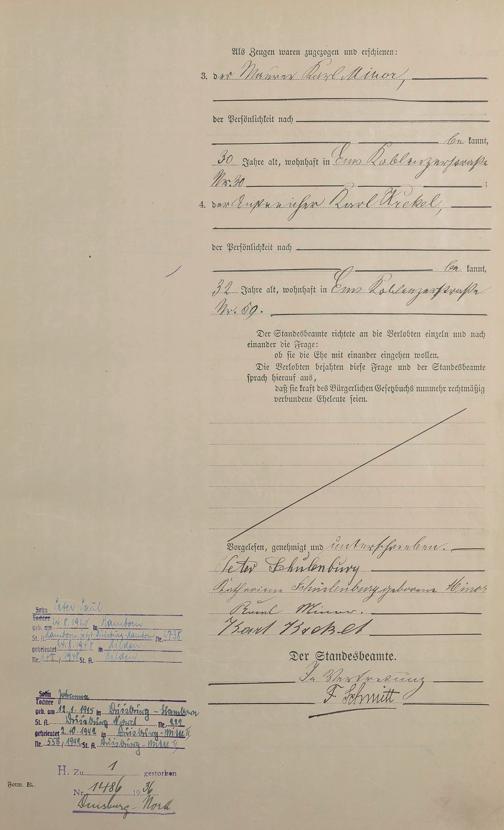 Als Zeugen waren zugezogen und erschienen:
3. der Maurer Karl Minor,
der Persönlichkeit nach
be kannt,
30 Jahre alt, wohnhaft in Ems Koblenzerstraße
Nr. 30 ;
4. der Anstreicher Karl Krekel,
der Persönlichkeit nach
be kannt,
32 Jahre alt, wohnhaft in Ems Koblenzerstraße
Nr. 59.
Der Standesbeamte richtete an die Verlobten einzeln und nach
einander die Frage:
ob sie die Ehe mit einander eingehen wollen.
Die Verlobten bejahten diese Frage und der Standesbeamte
sprach hierauf aus,
daß sie kraft des Bürgerlichen Gesetzbuchs nunmehr rechtmäßig
verbundene Eheleute seien.
Vorgelesen, genehmigt und unterschrieben.
Peter Schulenburg
Katharina Schulenburg geborene Minor
Karl Minor.
Karl Krekel
Der Standesbeamte.
In Vertretung
F. Schmitt
Sohn Peter Paul
Tochter
geb. am in Hamborn
St. A. Nr.
geheiratet in Hilden
Nr. St. A. Hilden
Sohn Johann
Tochter
geb. am 12.1.1915 in Duisburg-Hamborn
St. A. Duisburg Nord Nr.
geheiratet 2.10.1942 in Duisburg-Mitte
Nr. 558/1942 St. A. Duisburg-Mitte
H. Zu 1 gestorben
Nr. 1486 1936
Duisburg-Nord
Form. Bb.